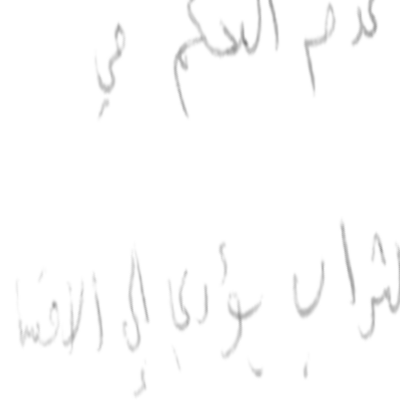 عدم التحكم في
الشراب يؤدي إلى الافشا